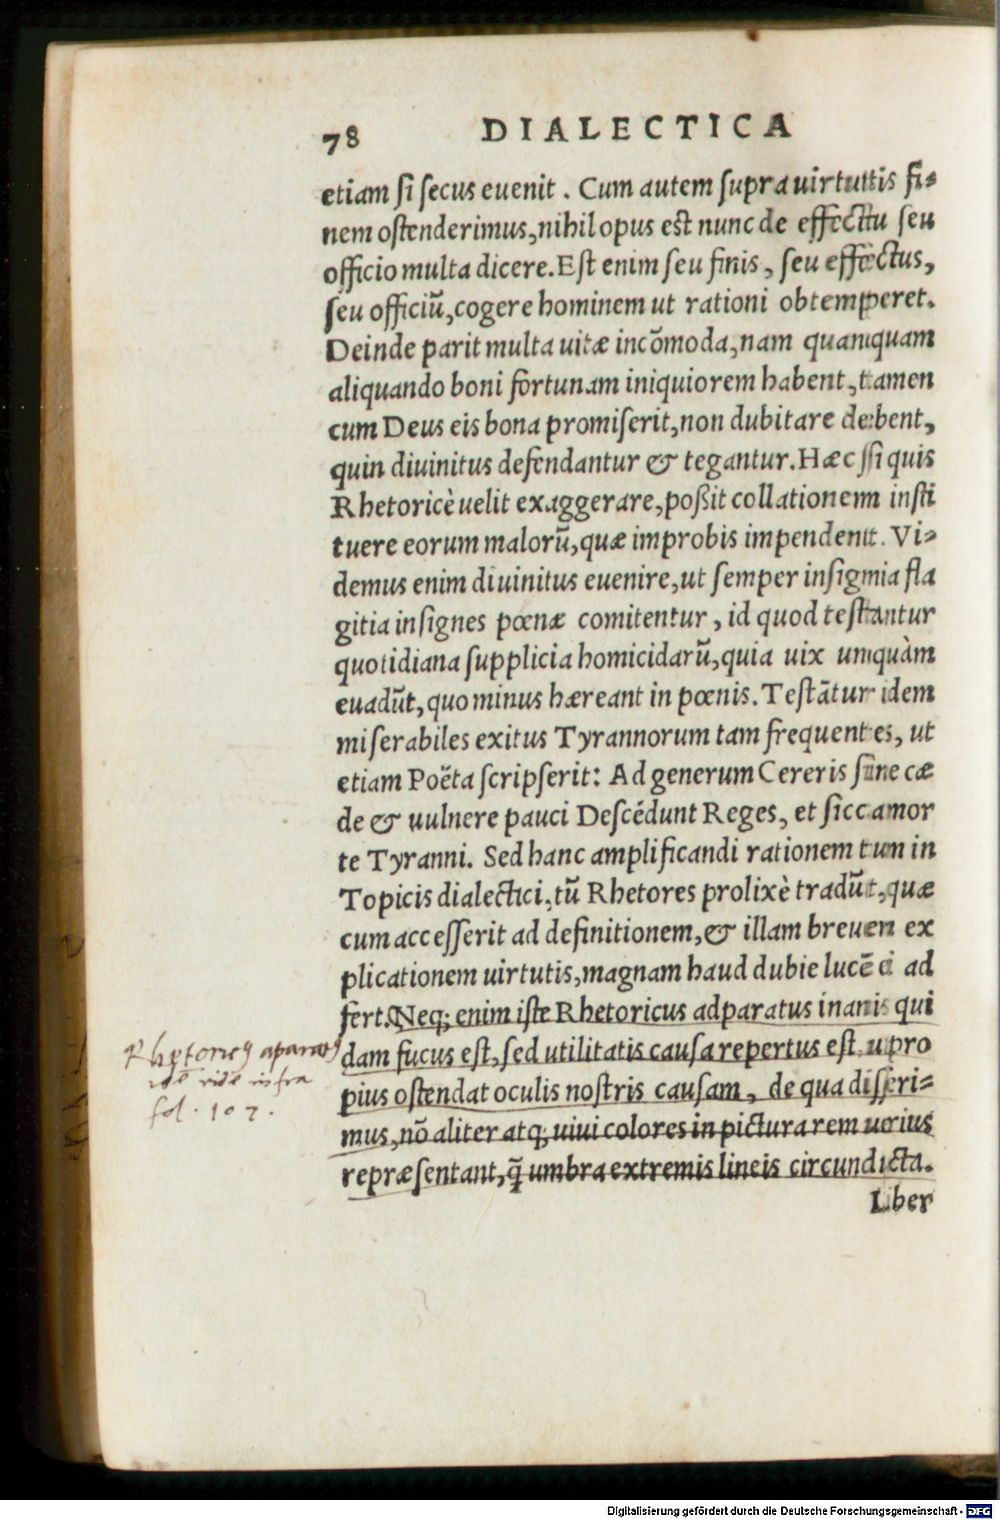 78 DIALECTICA
etiam si secus evenit. Cum autem supra uirtutis fi-
nem ostenderimus, nihil opus est nunc de effectu seu
officio multa dicere. Est enim seu finis, seu effectus,
seu officiũ, cogere hominem ut rationi obtemperet.
Deinde parit multa uitæ incõmoda, nam quamquam
aliquando boni fortunam iniquiorem habent, tamen
cum Deus eis bona promiserit, non dubitare debent,
quin diuinitus defendantur & tegantur. Hæc si quis
Rhetoricè uelit exaggerare, poßit collationem insti
tuere eorum malorũ, quæ improbis impendent. Vi-
demus enim diuinitus euenire, ut semper insignia fla
gitia insignes pœnæ comitentur, id quod testantur
quotidiana supplicia homicidarũ, quia uix unquàm
euadũt, quo minus hæreant in pœnis. Testãtur idem
miserabiles exitus Tyrannorum tam frequentes, ut
etiam Poëta scripserit: Ad generum Cereris sine cæ
de & uulnere pauci Descẽdunt Reges, et sicca mor
te Tyranni. Sed hanc amplificandi rationem tum in
Topicis dialectici, tũ Rhetores prolixè tradũt, quæ
cum accesserit ad definitionem, & illam breuem ex
plicationem uirtutis, magnam haud dubie lucẽ ei ad
fert. Neq; enim iste Rhetoricus adparatus inanis qui
dam fucus est, sed utilitatis causa repertus est, ut pro
pius ostendat oculis nostris causam, de qua disseri-
mus, nõ aliter atq; uiui colores in pictura rem uerius
repræsentant, q̃ umbra extremis lineis circundicta.
Liber
Rhetoricus aparatus
vide infra
fol. 107.
Digitalisierung gefördert durch die Deutsche Forschungsgemeinschaft - DFG